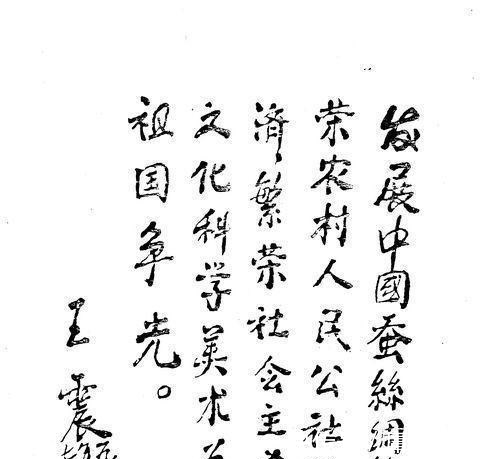 发展中國蚕絲綢
荣农村人民公社
济，繁荣社会主
文化科学美术
祖国争光。
王震